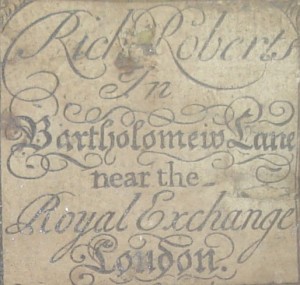 Rich Roberts
In
Bartholomew Lane
near the
Royal Exchange
London.